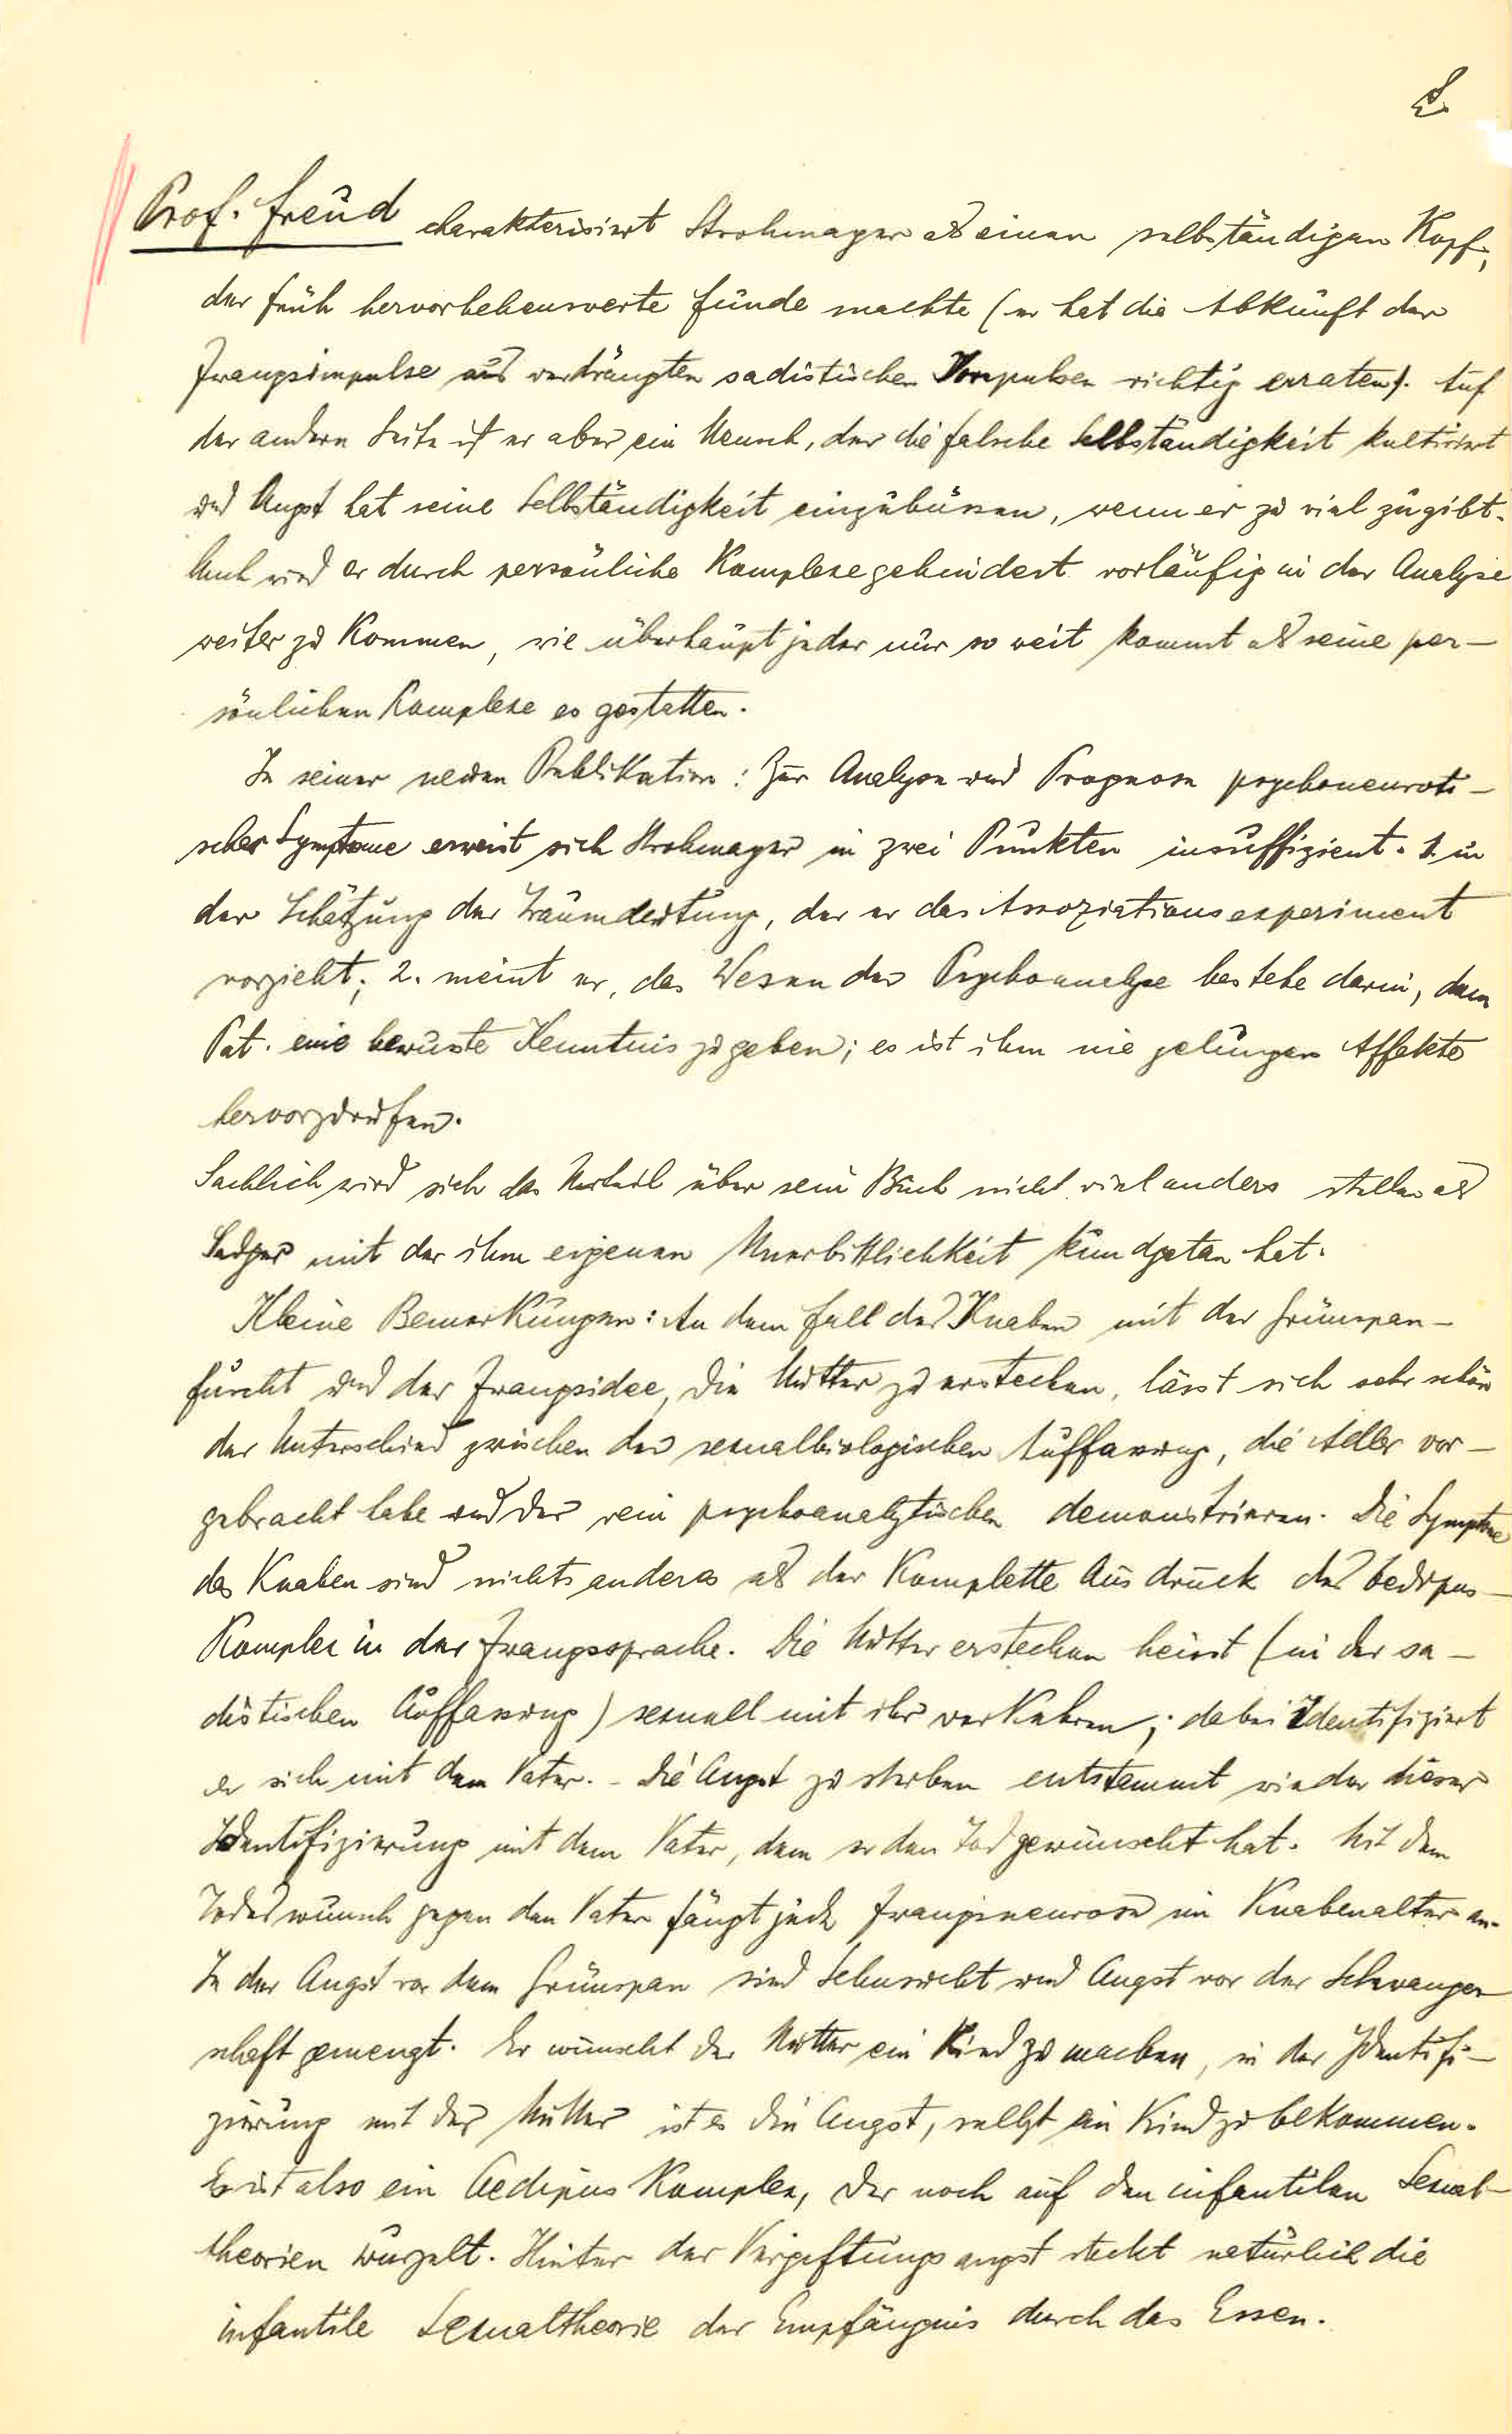 Prof. Freud charakterisiert Strohmayer als einen selbständigen Kopf,
der früh hervorhebenswerte Funde machte (er hat die Abkunft der
Zwangsimpulse aus verdrängten sadistischen Impulsen richtig erraten). Auf
der andern Seite ist er aber ein Mensch, der die falsche Selbständigkeit kultiviert
und Angst hat seine Selbständigkeit einzubüssen, wenn er zu viel zugibt.
Auch wird er durch persönliche Komplexe gehindert vorläufig in der Analyse
weiter zu kommen, wie überhaupt jeder nur so weit kommt als seine per-
sönlichen Komplexe es gestatten.
In seiner neuen Publikation: Zur Analyse und Prognose psychoneuroti-
scher Symptome erweist sich Strohmayer in zwei Punkten insuffizient. 1. in
der Schätzung der Traumdeutung, der er das Assoziationsexperiment
vorzieht; 2. meint er, das Wesen der Psychoanalyse bestehe darin, dem
Pat. eine bewusste Kenntnis zu geben; es ist ihm nie gelungen Affekte
hervorzurufen.
Sachlich wird sich das Urteil über sein Buch nicht viel anders stellen als
Sadger mit der ihm eigenen Unerbittlichkeit kundgetan hat.
Kleine Bemerkungen: An dem Fall des Knaben mit der Grünspan-
furcht und der Zwangsidee, die Mutter zu erstechen, lässt sich sehr schön
der Unterschied zwischen der sexualbiologischen Auffassung, die Adler vor-
gebracht habe und der rein psychoanalytischen demonstrieren. Die Symptome
des Knaben sind nichts anderes als der komplette Ausdruck des Oedipus-
Komplex in der Zwangssprache. Die Mutter erstechen heisst (in der sa-
distischen Auffassung) sexuell mit ihr verkehren; dabei identifiziert
er sich mit dem Vater. - Die Angst zu sterben entstammt wieder dieser
Identifizierung mit dem Vater, dem er den Tod gewünscht hat. Mit dem
Todeswunsch gegen den Vater fängt jede Zwangsneurose im Knabenalter an.
In der Angst vor dem Grünspan sind Sehnsucht und Angst vor der Schwanger
schaft gemengt. Er wünscht der Mutter ein Kind zu machen, in der Identifi-
zierung mit der Mutter ist es die Angst, selbst ein Kind zu bekommen.
Es ist also ein Oedipus Komplex, der noch auf den infantilen Sexual-
theorien wurzelt. Hinter der Vergiftungsangst steckt natürlich die
infantile Sexualtheorie der Empfängnis durch das Essen.